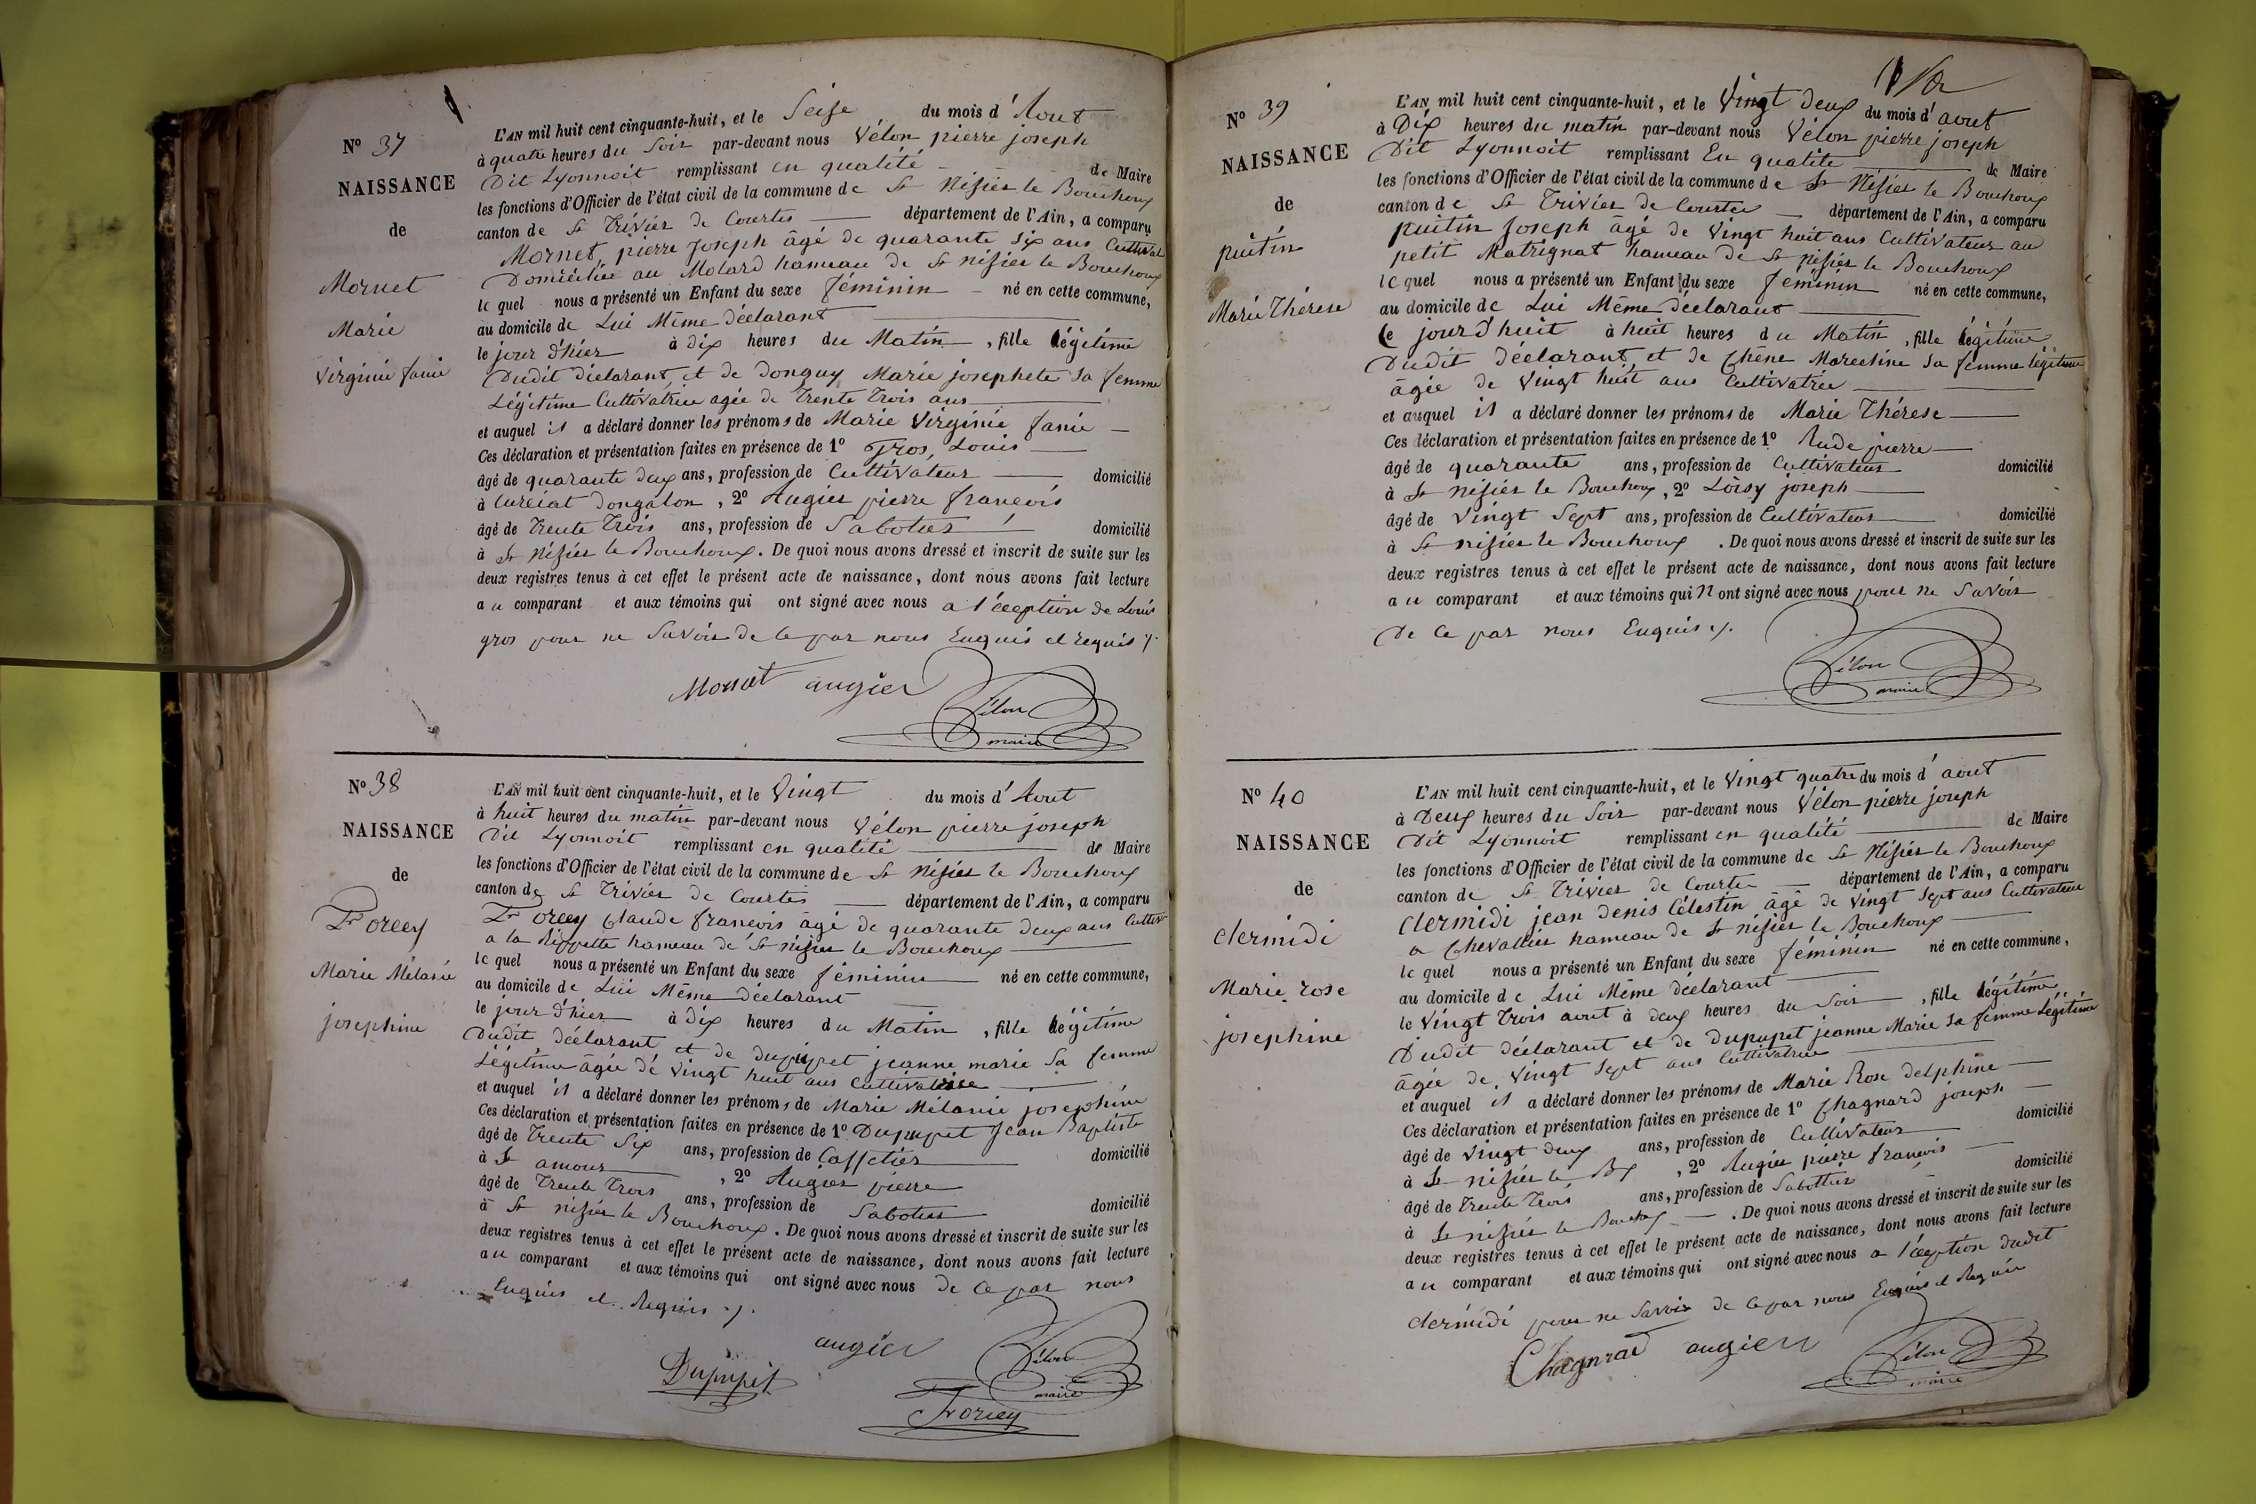 N° 37
NAISSANCE
de
Mornet
Marie
Virginie fanie
L'AN mil huit cent cinquante-huit, et le Seize du mois d'Aout
à quatre heures du Soir par-devant nous Vélon pierre joseph
Dit Lyonnoit remplissant en qualité de Maire
les fonctions d'Officier de l'état civil de la commune de St Nisiér le Bouchoux
canton de St Triviér de Courtes département de l'Ain, a comparu
Mornet, pierre Joseph âgé de quarante six ans Cultivat
Domiciliée au Molard hameau de St nisiér le Bouchoux
lequel nous a présenté un Enfant du sexe féminin né en cette commune,
au domicile de Lui Même déclarant
le jour d'hier à dix heures du Matin, fille légitime
Dudit déclarant et de donguy Marie josephete Sa femme
Légitime Cultivatrice agée de Trente Trois ans
et auquel il a déclaré donner les prénoms de Marie Virginie fanie
Ces déclaration et présentation faites en présence de 1° Gros, Louis
âgé de quarante deux ans, profession de Cultivateur domicilié
à Curciat dongalon, 2° Augier pierre francois
âgé de Trente Trois ans, profession de Sabotier domicilié
à St Nisiér le Bouchoux. De quoi nous avons dressé et inscrit de suite sur les
deux registres tenus à cet effet le présent acte de naissance, dont nous avons fait lecture
au comparant et aux témoins qui ont signé avec nous a l'éception de Louis
gros pour ne Savoir de ce par nous Enquis et requis
Mornet augier Vélon
maire
N° 38
NAISSANCE
de
Forcey
Marie Mélanie
josephine
L'AN mil huit cent cinquante-huit, et le Vingt du mois d'Aout
à huit heures du matin par-devant nous Vélon pierre joseph
Dit Lyonnoit remplissant en qualité de Maire
les fonctions d'Officier de l'état civil de la commune de St Nisiér le Bouchoux
canton de St Triviér de Courtes département de l'Ain, a comparu
Forcey Claude francois âgé de quarante deux ans Cultivr
a la hameau de St nisier le Bouchoux
lequel nous a présenté un Enfant du sexe féminin né en cette commune,
au domicile de Lui Même déclarant
le jour d'hier à dix heures du Matin, fille légitime
Dudit déclarant et de dupupet jeanne marie Sa femme
Légitime âgée de Vingt huit ans Cultivatrice
et auquel il a déclaré donner les prénoms de Marie Mélanie josephine
Ces déclaration et présentation faites en présence de 1° Dupupet Jean Baptiste
âgé de Trente Six ans, profession de Caffetier domicilié
à St amour, 2° Augier pierre
âgé de Trente Trois ans, profession de Sabotier domicilié
à St nisiér le Bouchoux. De quoi nous avons dressé et inscrit de suite sur les
deux registres tenus à cet effet le présent acte de naissance, dont nous avons fait lecture
au comparant et aux témoins qui ont signé avec nous de ce par nous
Enquis et Requis
augier Vélon
Dupupet maire
Forcey
N° 39
NAISSANCE
de
puitin
Marie Thérese
L'AN mil huit cent cinquante-huit, et le Vingt deux du mois d'aout
à Dix heures du matin par-devant nous Vélon pierre joseph
Dit Lyonnoit remplissant En qualite de Maire
les fonctions d'Officier de l'état civil de la commune de St Nisier le Bouchoux
canton de St Trivier de Courtes département de l'Ain, a comparu
puitin Joseph âgé de Vingt huit ans Cultivateur au
petit Matrignat hameau de St nisiér le Bouchoux
lequel nous a présenté un Enfant du sexe féminin né en cette commune,
au domicile de Lui Même déclarant
Ce jourd'huit à huit heures du Matin, fille légitime
Dudit déclarant et de Chêne Marechine Sa femme légitime
âgée de Vingt huit ans Cultivatrice
et auquel il a déclaré donner les prénoms de Marie Thérese
Ces déclaration et présentation faites en présence de 1° Rude pierre
âgé de quarante ans, profession de Cultivateur domicilié
à St nisiér le Bouchoux, 2° Loisy joseph
âgé de Vingt Sept ans, profession de Cultivateur domicilié
à St nisiér le Bouchoux. De quoi nous avons dressé et inscrit de suite sur les
deux registres tenus à cet effet le présent acte de naissance, dont nous avons fait lecture
au comparant et aux témoins qui n ont signé avec nous pour ne Savoir
De ce par nous Enquis
Vélon
maire
N° 40
NAISSANCE
de
clermidi
Marie rose
josephine
L'AN mil huit cent cinquante-huit, et le Vingt quatre du mois d'aout
à Deux heures du Soir par-devant nous Vélon pierre joseph
Dit Lyonnoit remplissant en qualité de Maire
les fonctions d'Officier de l'état civil de la commune de St Nisiér le Bouchoux
canton de St Trivier de Courtes département de l'Ain, a comparu
Clermidi jean denis Célestin âgé de Vingt Sept ans Cultivateur
a Chevallier hameau de St nisiér le Bouchoux
lequel nous a présenté un Enfant du sexe féminin né en cette commune,
au domicile de Lui Même déclarant
le Vingt Trois aout à deux heures du Soir, fille légitime
Dudit déclarant et de Dupupet jeanne Marie Sa femme Légitime
âgée de Vingt Sept ans Cultivatrice
et auquel il a déclaré donner les prénoms de Marie Rose delphine
Ces déclaration et présentation faites en présence de 1° Chagnard joseph
âgé de Vingt deux ans, profession de Cultivateur domicilié
à St nisiér le Bx, 2° Augier pierre francois
âgé de Trente Trois ans, profession de Sabottier domicilié
à St nisiér le Bouchoux. De quoi nous avons dressé et inscrit de suite sur les
deux registres tenus à cet effet le présent acte de naissance, dont nous avons fait lecture
au comparant et aux témoins qui ont signé avec nous a l'éception dudit
clermidi pour ne Savoir de ce par nous Enquis et Requis
Chagnrad augier Vélon
maire